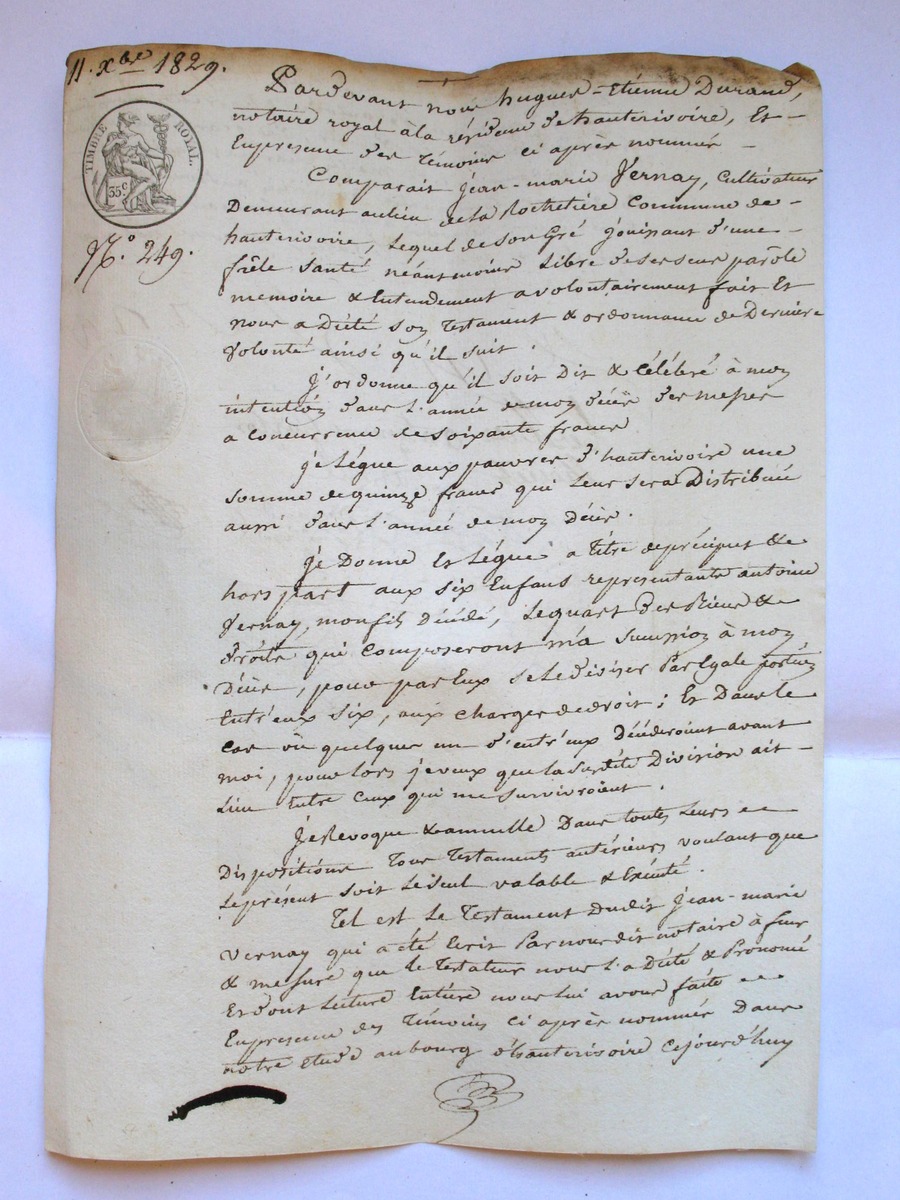 11. Xbre 1829.
TIMBRE ROYAL.
35 c
N.° 249.
Pardevant nous hugues-Etienne Durand,
notaire royal à la résidence de hauterivoire, Et
En presence des Témoins ci après nommés
Comparait Jean-marie Vernay, Cultivateur
Demeurant au lieu de la Rochetière Commune de
hauterivoire, Lequel de son Gré jouissant d'une
frêle santé néanmoins Libre de ses sens parole
memoire & Entendement a volontairement fait Et
nous a Dicté son Testament & ordonnance de Derniere
Volonté ainsi qu'il suit.
J'ordonne qu'il soit Dit & Célébré à mon
intention dans l'année de mon décès des messes
a Concurrence de soixante francs
je Légue aux pauvres d'hauterivoire une
somme de quinze francs qui leur sera Distribuée
aussi dans l'année de mon Décès.
Je Donne Et Légue a titre de préciput & de
hors part aux six Enfans representants antoine
Vernay, mon fils Décédé, Le quart des Biens &
droits qui Composeront ma succession à mon
Décès, pour par Eux se le diviser Par Egale portion
Entr'eux six, aux charges de droit; Et Dans le
Cas où quelques un d'entr'eux Décéderoient avant
moi, pour lors je veux que la susdite Division ait
Lieu Entre Ceux qui me survivroient.
Je Revoque & annulle Dans toutes Leurs
Dispositions Tous Testaments antérieurs voulant que
Le présent soit Le seul valable & Exécuté.
Tel est Le Testament Dudit Jean-marie
Vernay qui a été Ecrit Par nous dit notaire à fur
& mesure que Le Testateur nous l'a Dicté & Prononcé
Et dont Lecture Entière nous Lui avons faite
En presence des Témoins ci après nommés Dans
notre Etude au bourg d'hauterivoire cejourd'huy